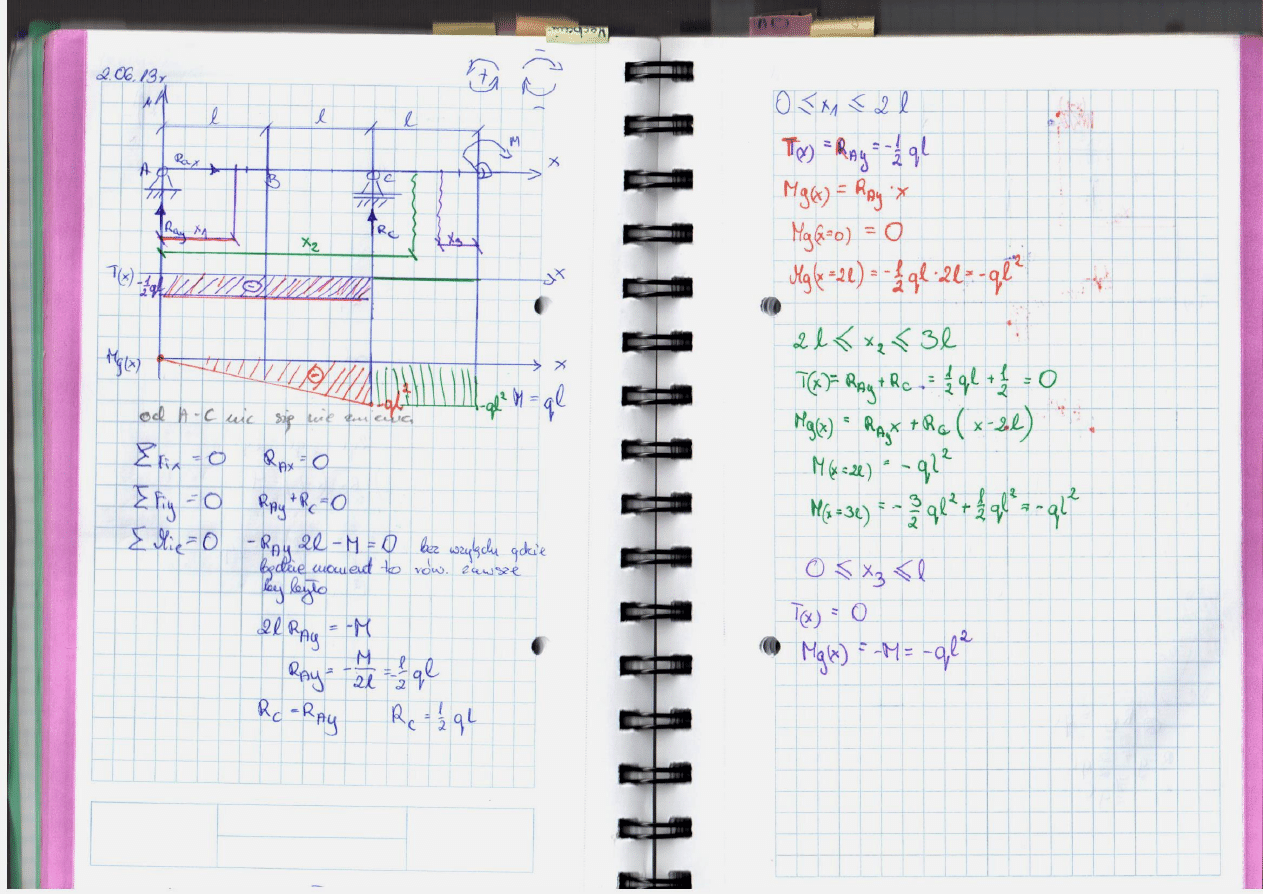 2.06.13r
+
l l l
M
A Rax B C x
Ray x1 Rc x3
x2
T(x) -1/2ql - x
Mg(x) - x
-ql² -ql² M = ql
od A-C nic się nie zmienia
ΣFix = 0 RAx = 0
ΣFiy = 0 RAy + Rc = 0
ΣMic = 0 -RAy 2l - M = 0 bez względu gdzie
będzie moment to rów. zawsze
by było
2l RAy = -M
RAy = -M/2l = -1/2 ql
Rc = RAy Rc = 1/2 ql
0 ≤ x1 ≤ 2l
T(x) = RAy = -1/2 ql
Mg(x) = RAy · x
Mg(x=0) = 0
Mg(x=2l) = -1/2 ql · 2l = -ql²
2l ≤ x2 ≤ 3l
T(x) = RAy + Rc = 1/2 ql + 1/2 = 0
Mg(x) = RAy x + Rc (x-2l)
M(x=2l) = -ql²
M(x=3l) = -3/2 ql² + 1/2 ql² = -ql²
0 ≤ x3 ≤ l
T(x) = 0
Mg(x) = -M = -ql²